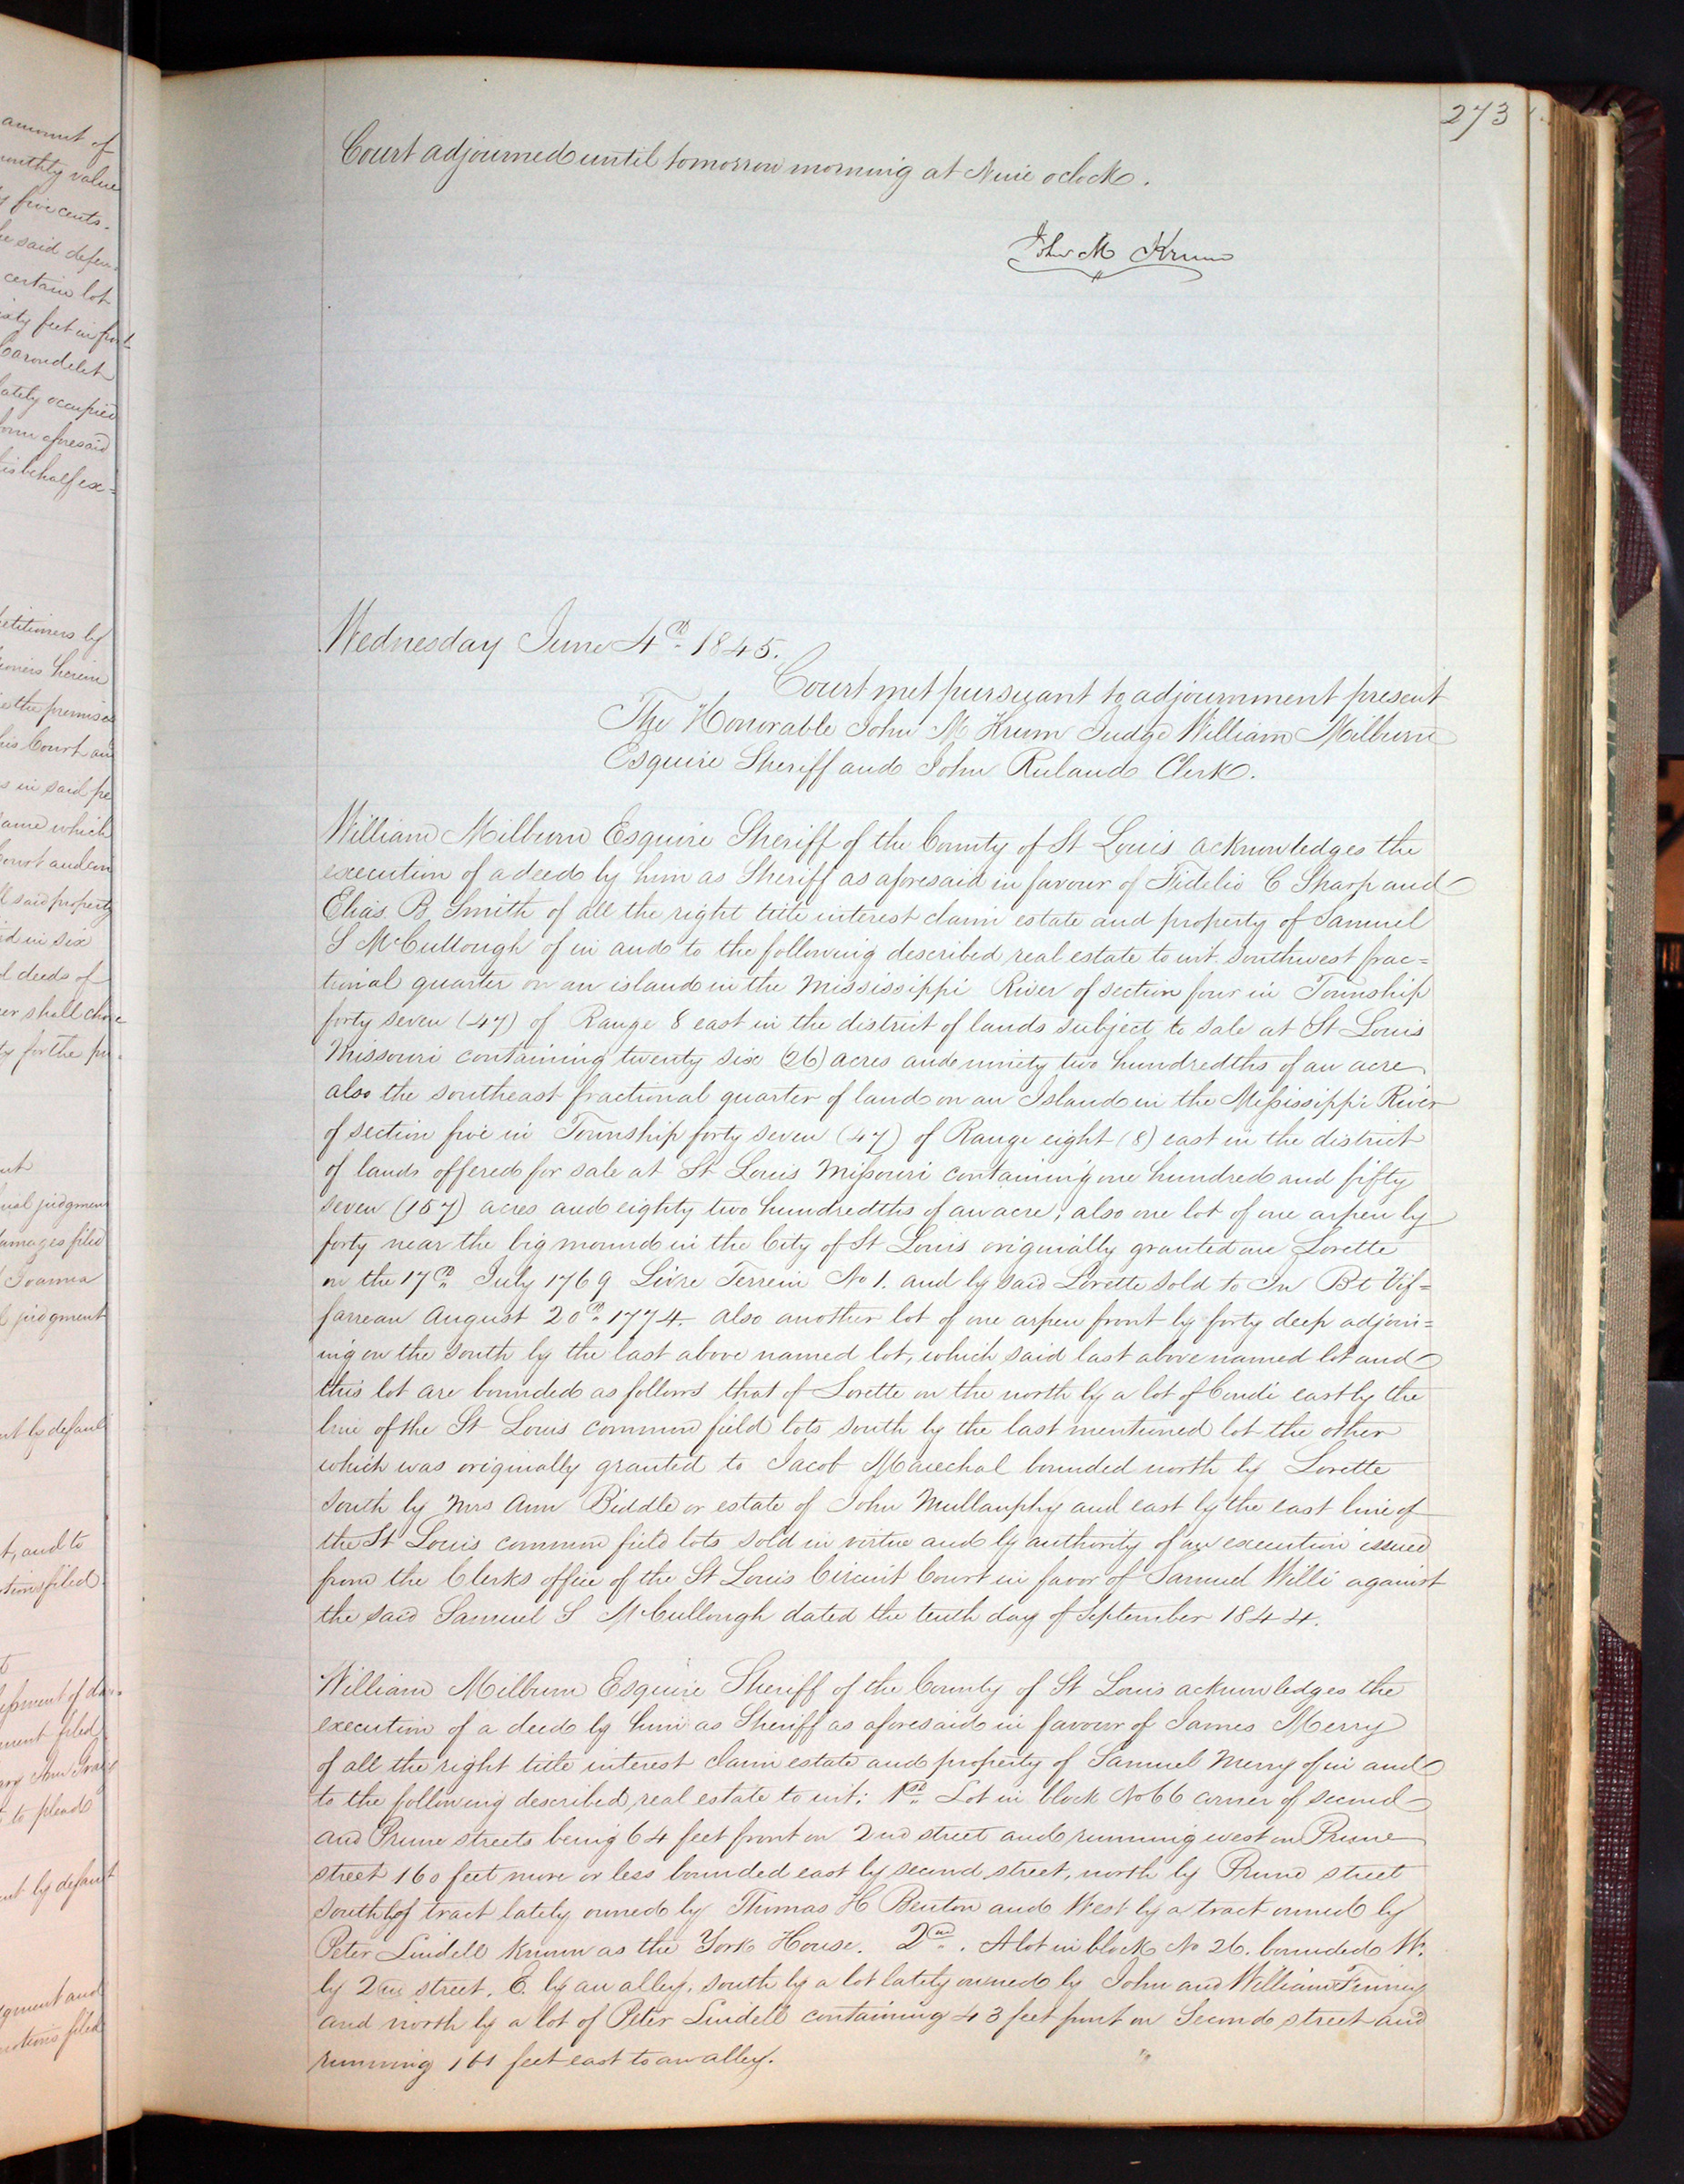 amount of
monthly value
five cents.
said defen=
certain lot
feet in front
Carondelet
lately occupied
aforesaid
his behalf ex=
petitioners by
herein
the premises
his Court and
s in said pe
same which
Court and
said property
in six
deeds of
er shall
for the
judgment
damages filed
Joanna
judgment
by default
t, and to
filed
filed
to plead
by default
and
motions filed
273
Court adjourned until tomorrow morning at Nine oclock.
John M Krum
Wednesday June 4th 1845.
Court met pursuant to adjournment present
The Honorable John M Krum Judge William Milburn
Esquire Sheriff and John Ruland Clerk.
William Milburn Esquire Sheriff of the County of St Louis acknowledges the
execution of a deed by him as Sheriff as aforesaid in favour of Fidelio C Sharp and
Elias B Smith of all the right title interest claim estate and property of Samuel
S McCullough of in and to the following described real estate to wit southwest frac=
tional quarter on an island in the Mississippi River of section four in Township
forty seven (47) of Range 8 east in the district of lands subject to sale at St Louis
Missouri containing twenty six (26) acres and ninety two hundredths of an acre
also the southeast fractional quarter of land on an Island in the Mississippi River
of section five in Township forty seven (47) of Range eight (8) east in the district
of lands offered for sale at St Louis Missouri containing one hundred and fifty
seven (157) acres and eighty two hundredths of an acre; also one lot of one arpen by
forty near the big mound in the City of St Louis originally granted one Lorette
on the 17th July 1769 Livre Terrein No 1. and by said Lorette sold to Jn Bt Vif=
farreau August 20th 1774. also another lot of one arpen front by forty deep adjoin=
ing on the south by the last above named lot, which said last above named lot and
this lot are bounded as follows that of Lorette on the north by a lot of Condi east by the
line of the St Louis common field lots south by the last mentioned lot the other
which was originally granted to Jacob Marechal bounded north by Lorette
south by Mrs Ann Biddle or estate of John Mullanphy and east by the east line of
the St Louis common field lots sold in virtue and by authority of an execution issued
from the Clerks office of the St Louis Circuit Court in favor of Samuel Willi against
the said Samuel S McCullough dated the tenth day of September 1844.
William Milburn Esquire Sheriff of the County of St Louis acknowledges the
execution of a deed by him as Sheriff as aforesaid in favour of James Merry
of all the right title interest claim estate and property of Samuel Merry of in and
to the following described real estate to wit: 1st Lot in block No 66 corner of second
and Prune streets being 64 feet front on 2nd street and running west on Prune
street 160 feet more or less bounded east by second street, north by Prune street
south by tract lately owned by Thomas H Benton and West by a tract owned by
Peter Lindell known as the York House. 2nd. A lot in block No 26. bounded W.
by 2nd street, E. by an alley, south by a lot lately owned by John and William Finney
and north by a lot of Peter Lindell containing 43 feet front on Second street and
running 161 feet east to an alley.